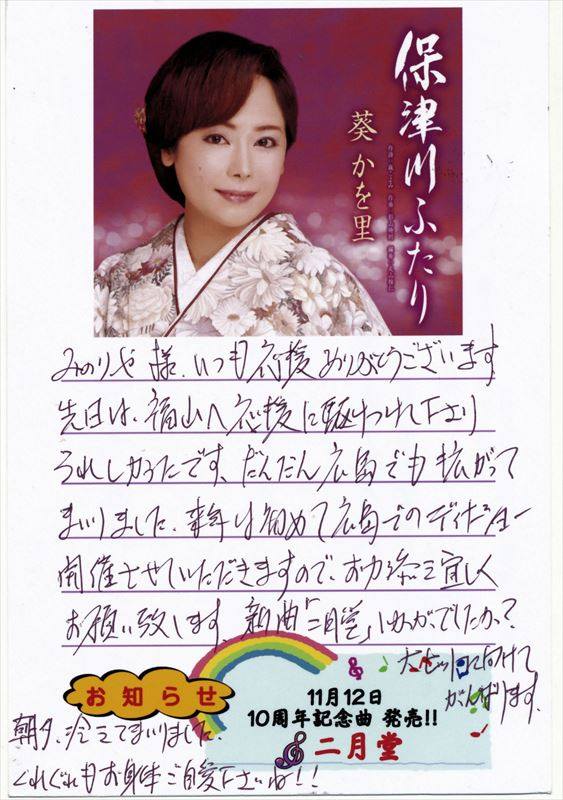 保津川ふたり
葵かを里
みのりや様、いつも応援ありがとうございます
先日は、福山へ応援に駆けつけて下さり
うれしかったです。だんだん広島でも広がって
まいりました。来年は初めて広島でのディナーショー
開催させていただきますので、お力添え宜しく
お願い致します。新曲「二月堂」いかがでしたか?
大ヒットに向けて
がんばります。
お知らせ
11月12日
10周年記念曲 発売!!
二月堂
朝夕、冷えてまいりました。
くれぐれもお身体ご自愛下さいね!!